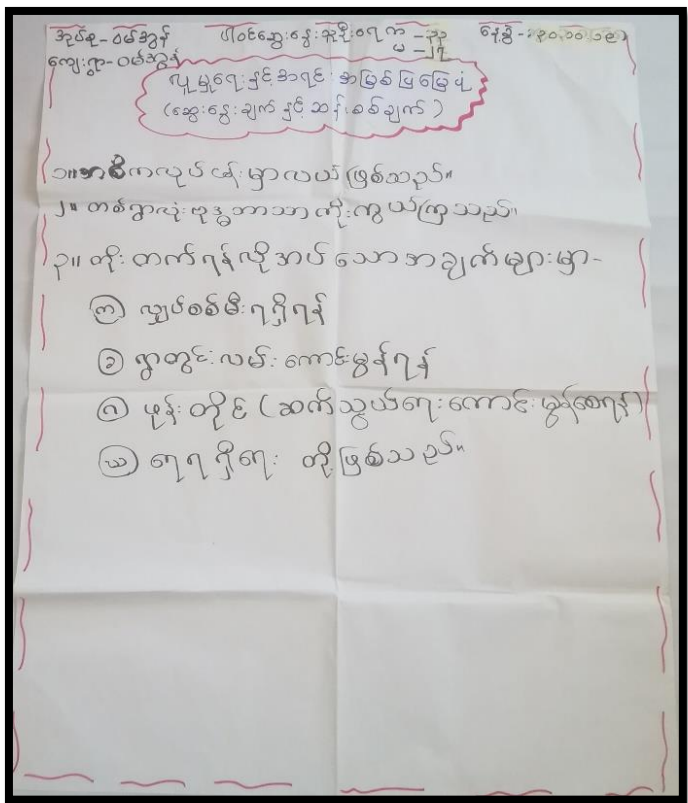 အုပ်စု-ဝမ်အွန် ပါဝင်ဆွေးနွေးသူဦးရေ က - ၃၃ နေ့စွဲ - ၁၃၀.၁၀.၁၉
ကျေးရွာ-ဝမ်အွန် မ - ၂၇
လူမှုရေးနှင့်အရင်းအမြစ်ပြမြေပုံ
(ဆွေးနွေးချက်နှင့်ဆန်းစစ်ချက်)
၁။ အဓိကလုပ်ငန်းမှာလယ်ဖြစ်သည်။
၂။ တစ်ရွာလုံးဗုဒ္ဓဘာသာကိုးကွယ်ကြသည်။
၃။ တိုးတက်ရန်လိုအပ်သောအချက်များမှာ-
(က) လျှပ်စစ်မီးရရှိရန်
(ခ) ရွာတွင်းလမ်းကောင်းမွန်ရန်
(ဂ) ဖုန်းတိုင် (ဆက်သွယ်ရေးကောင်းမွန်စေရန်)
(ဃ) ရေရရှိရေး တို့ဖြစ်သည်။